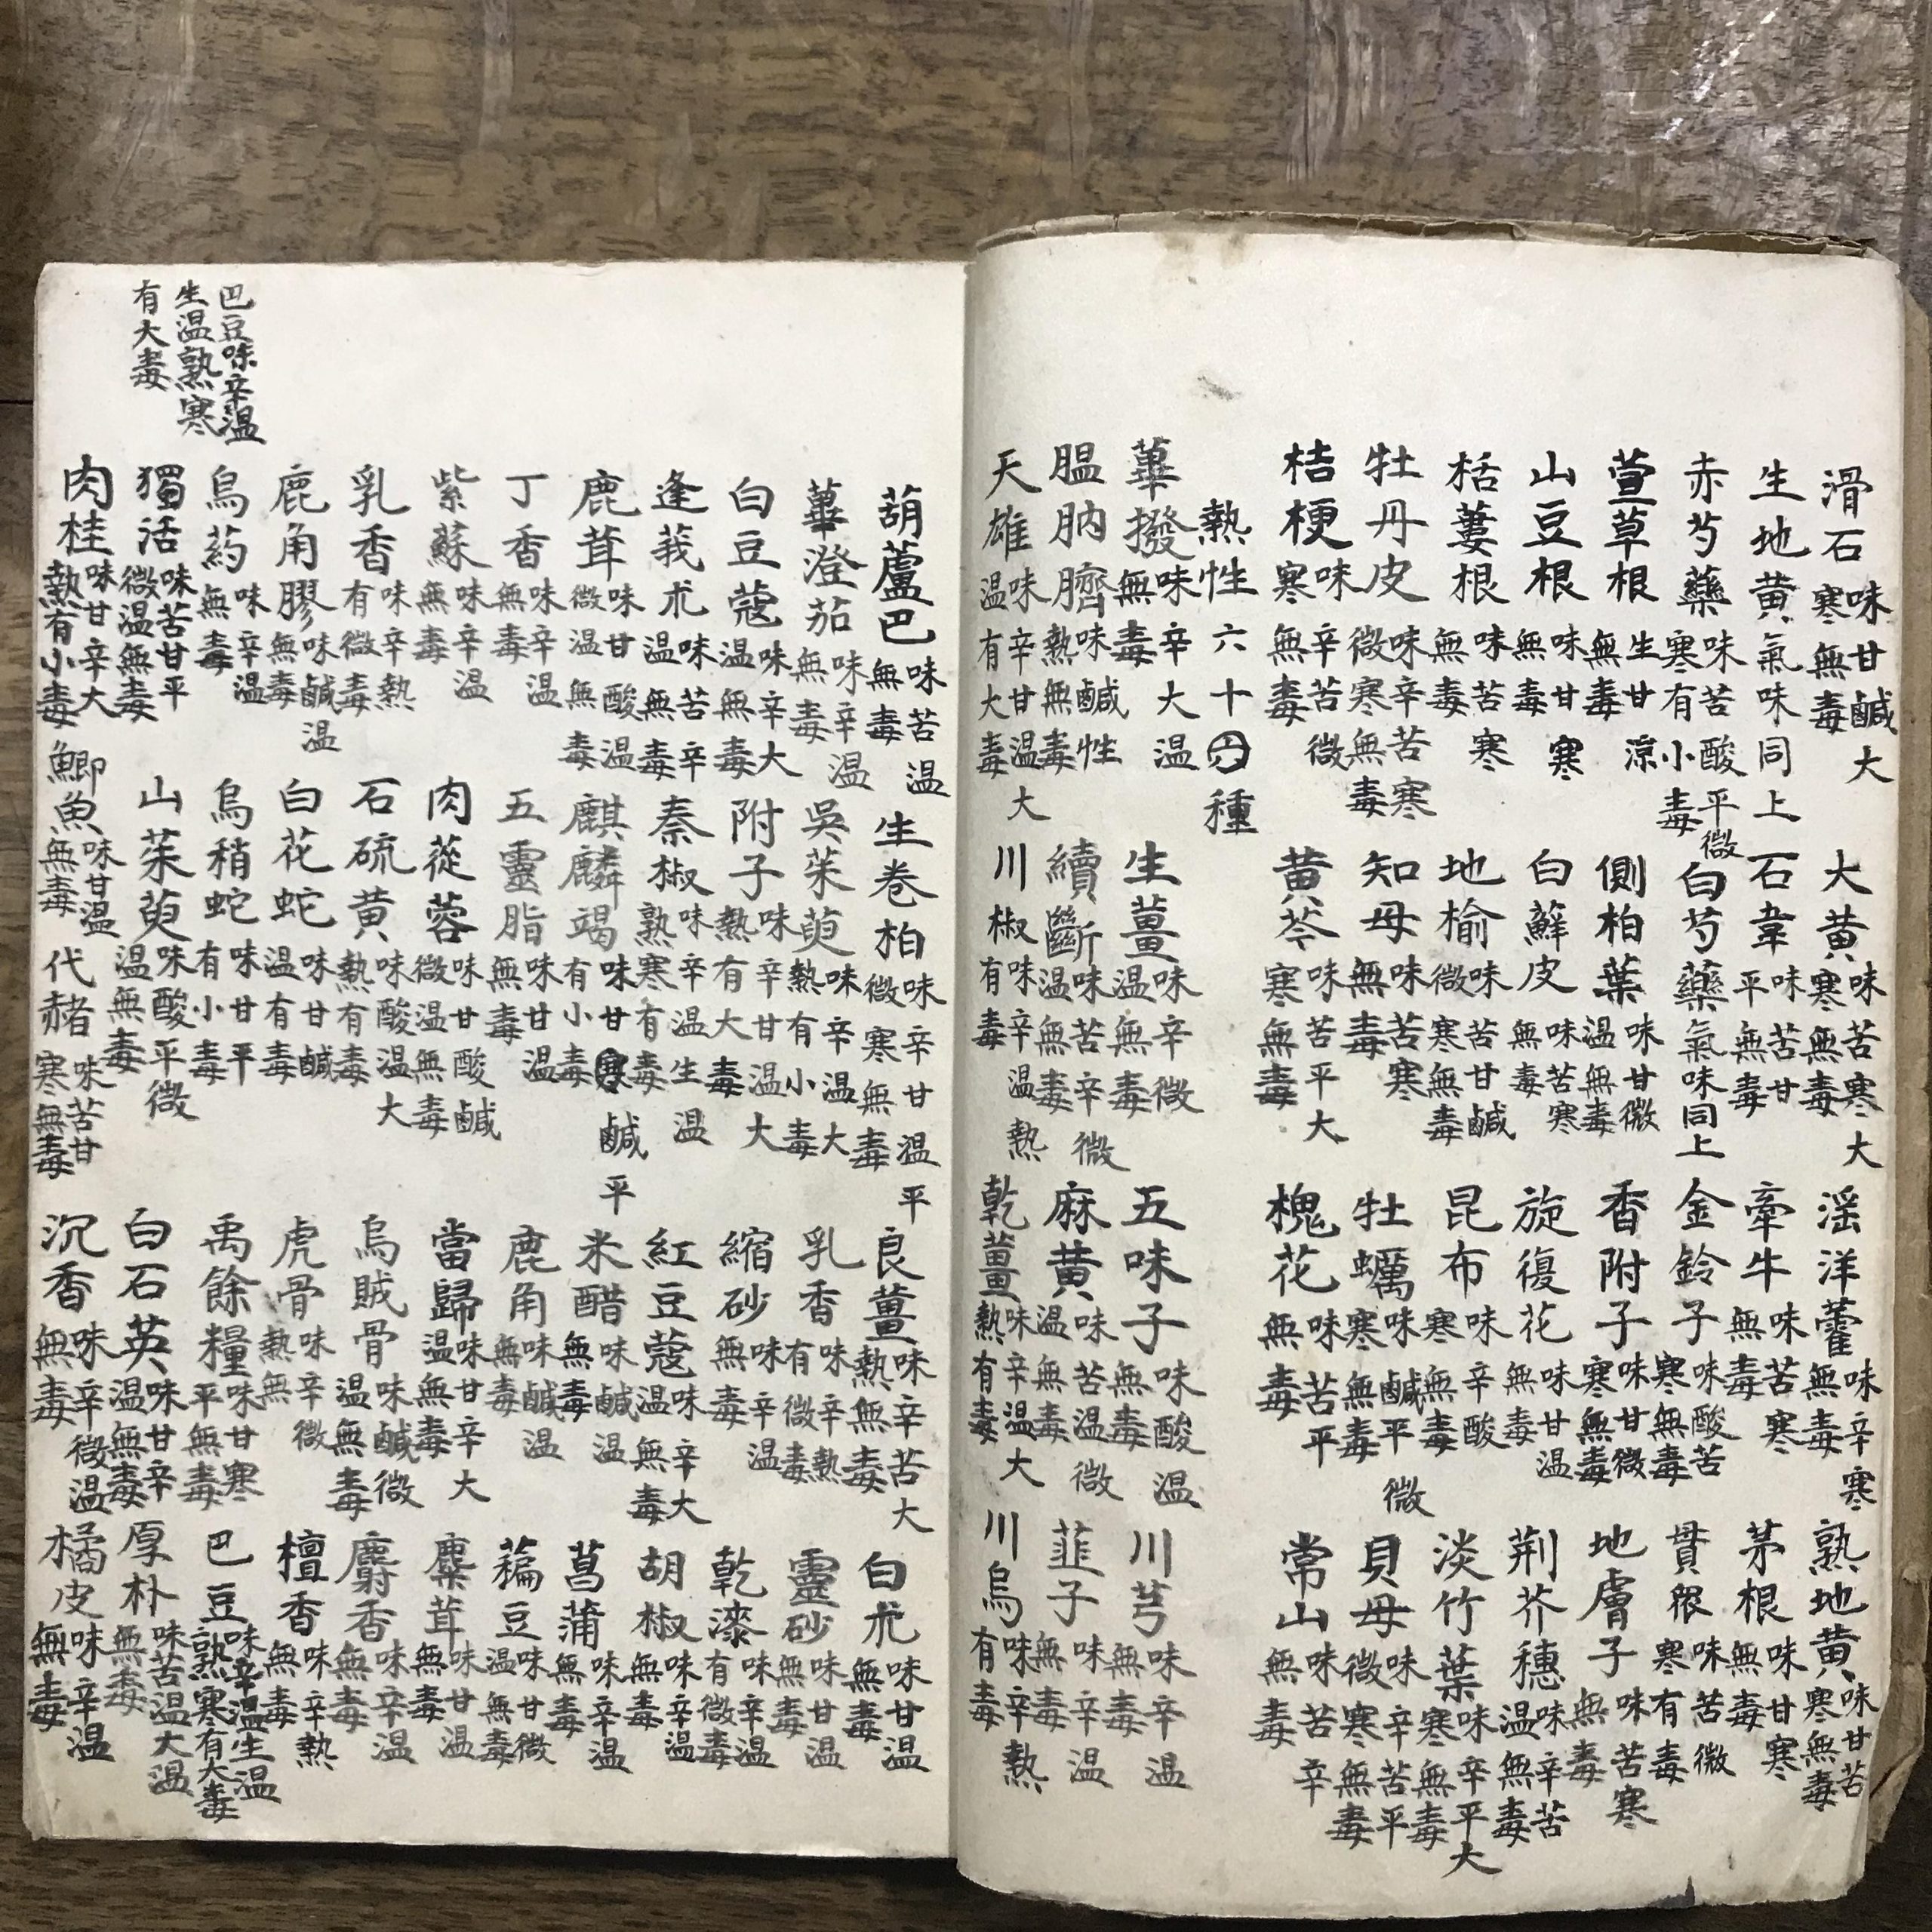 滑石味甘鹹大寒無毒 大黃味苦寒大寒無毒 滛洋藿味辛寒無毒 熟地黃味甘苦寒無毒
生地黃氣味同上 石韋味苦甘平無毒 牽牛味苦寒無毒 茅根味甘寒無毒
赤芍藥味苦酸平微寒有小毒 白芍藥氣味同上 金鈴子味酸苦寒無毒 貫味苦微寒有毒
萱草根生甘涼無毒 側柏葉味甘微温無毒 香附子味甘微寒無毒 地膚子味苦寒無毒
山豆根味甘寒無毒 白蘚皮味苦寒無毒 旋復花味甘温無毒 荆芥穗味辛苦温無毒
栝蔞根味苦寒無毒 地榆味苦甘鹹微寒無毒 昆布味辛酸寒無毒 淡竹葉味辛平大寒無毒
牡丹皮味辛苦寒微寒無毒 知母味苦寒無毒 牡蠣味鹹平微寒無毒 貝母味辛苦平微寒無毒
桔梗味辛苦微寒無毒 黃芩味苦平大寒無毒 槐花味苦平無毒 常山味苦辛無毒
熱性六十四種
蓽撥味辛大温無毒 生薑味辛微温無毒 五味子味酸温無毒 川芎味辛温無毒
膃肭臍味鹹性熱無毒 續斷味苦辛微温無毒 麻黃味苦温微温無毒 韮子味辛温無毒
天雄味辛甘温大温有大毒 川椒味辛温熱有毒 乾薑味辛温大熱有毒 川烏味辛熱有毒
葫蘆巴味苦温無毒 生卷柏味辛甘温平微寒無毒 良薑味辛苦大熱無毒 白朮味甘温無毒
蓽澄茄味辛温無毒 吳茱萸味辛温大熱有小毒 乳香味辛熱有微毒 靈砂味甘温無毒
白豆蔻味辛大温無毒 附子味辛甘温大熱有大毒 縮砂味辛温無毒 乾漆味辛温有微毒
逢莪朮味苦辛温無毒 秦椒味辛温生温熟寒有毒 紅豆蔻味辛大温無毒 胡椒味辛温無毒
鹿茸味甘酸温微温無毒 麒麟竭味甘鹹平有小毒 米醋味鹹温無毒 菖蒲味辛温無毒
丁香味辛温無毒 五靈脂味甘温無毒 鹿角味鹹温無毒 藊豆味甘微温無毒
紫蘇味辛温無毒 肉蓯蓉味甘酸鹹微温無毒 當歸味甘辛大温無毒 麋茸味甘温無毒
乳香味辛熱有微毒 石硫黃味酸温大熱有毒 烏賊骨味鹹微温無毒 麝香味辛温無毒
鹿角膠味鹹温無毒 白花蛇味甘鹹温有毒 虎骨味辛微熱無 檀香味辛熱無毒
烏药味辛温無毒 烏稍蛇味甘平有小毒 禹餘糧味甘寒平無毒 巴豆味辛温生温熟寒有大毒
獨活味苦甘平微温無毒 山茱萸味酸平微温無毒 白石英味甘辛温無毒 厚朴味苦温大温無毒
肉桂味甘辛大熱有小毒 鯽魚味甘温無毒 代赭味苦甘寒無毒 沉香味辛微温無毒 橘皮味辛温無毒
巴豆味辛温
生温熟寒
有大毒